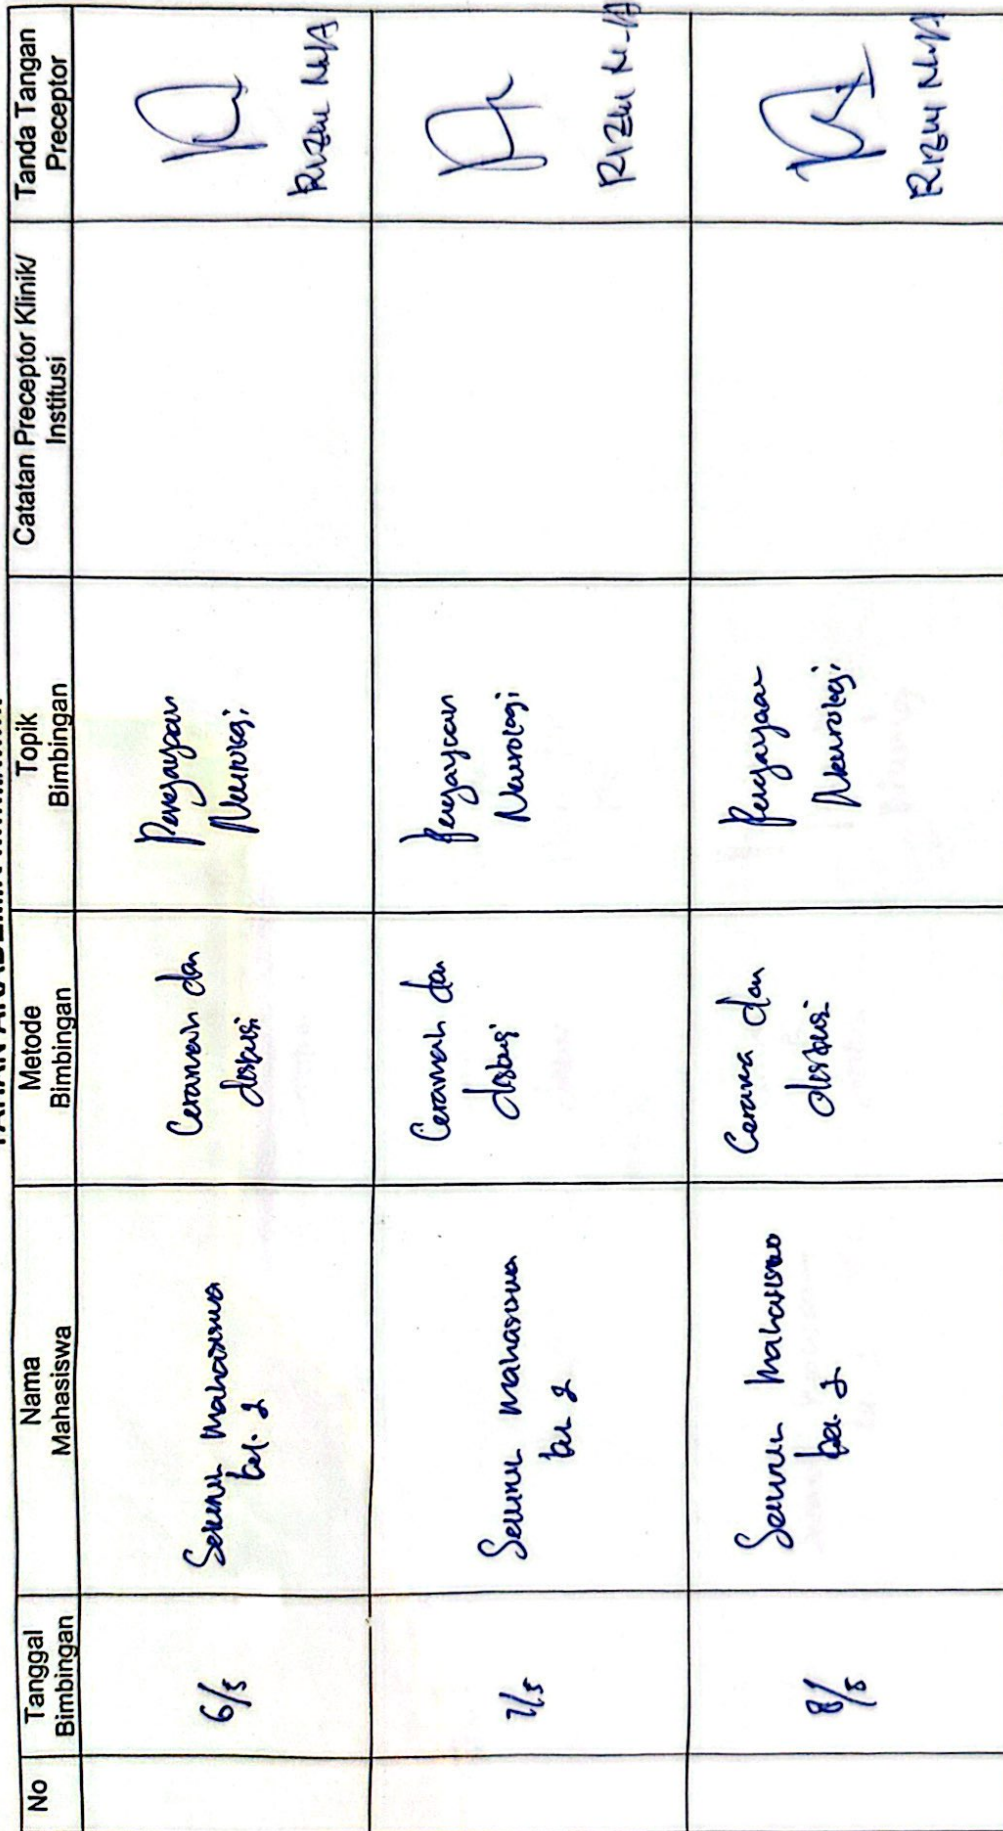 TAHAN AKADEMIK
No
Tanggal
Bimbingan
Nama
Mahasiswa
Metode
Bimbingan
Topik
Bimbingan
Catatan Preceptor Klinik/
Institusi
Tanda Tangan
Preceptor
6/5
Semua mahasiswa
kel. 2
Ceramah dan
diskusi
Pengayaan
Neurologi
7/5
Semua mahasiswa
kel 2
Ceramah dan
diskusi
Pengayaan
Neurologi
8/5
Semua mahasiswa
kel. 2
Cerama dan
diskusi
Pengayaan
Neurologi